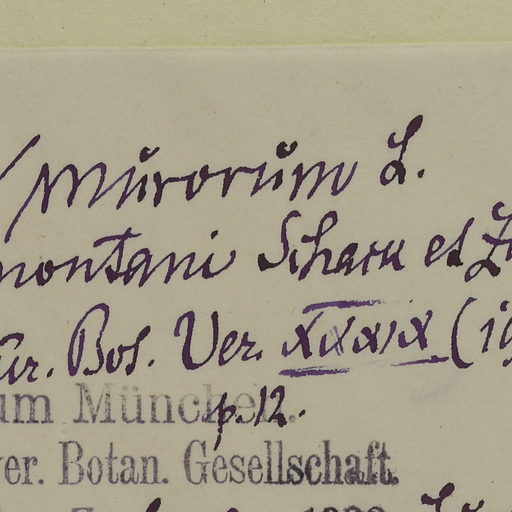 murorum L.
montani Scharu et
Bot. Ver. XXXIX (19
p. 12.
um München.
er. Botan. Gesellschaft.